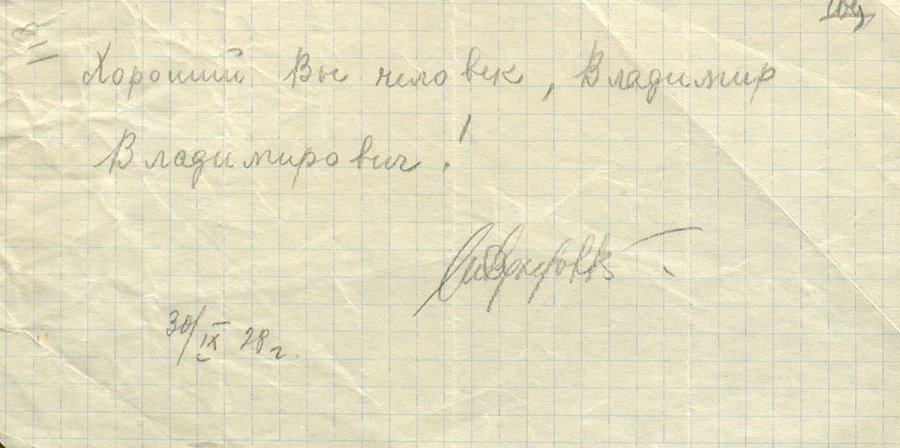 Хороший Вы человек, Владимир
Владимирович!
30/IX 28 г.